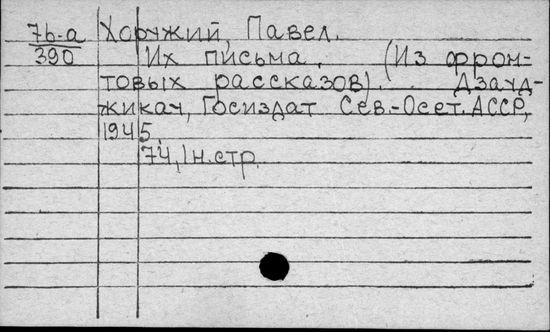 7б-а Хоружий, Павел.
390 Их письма. (Из фрон-
товых рассказов). Дзауд-
жикау, Госиздат Сев.-Осет. АССР,
1945
74, 1н.стр.